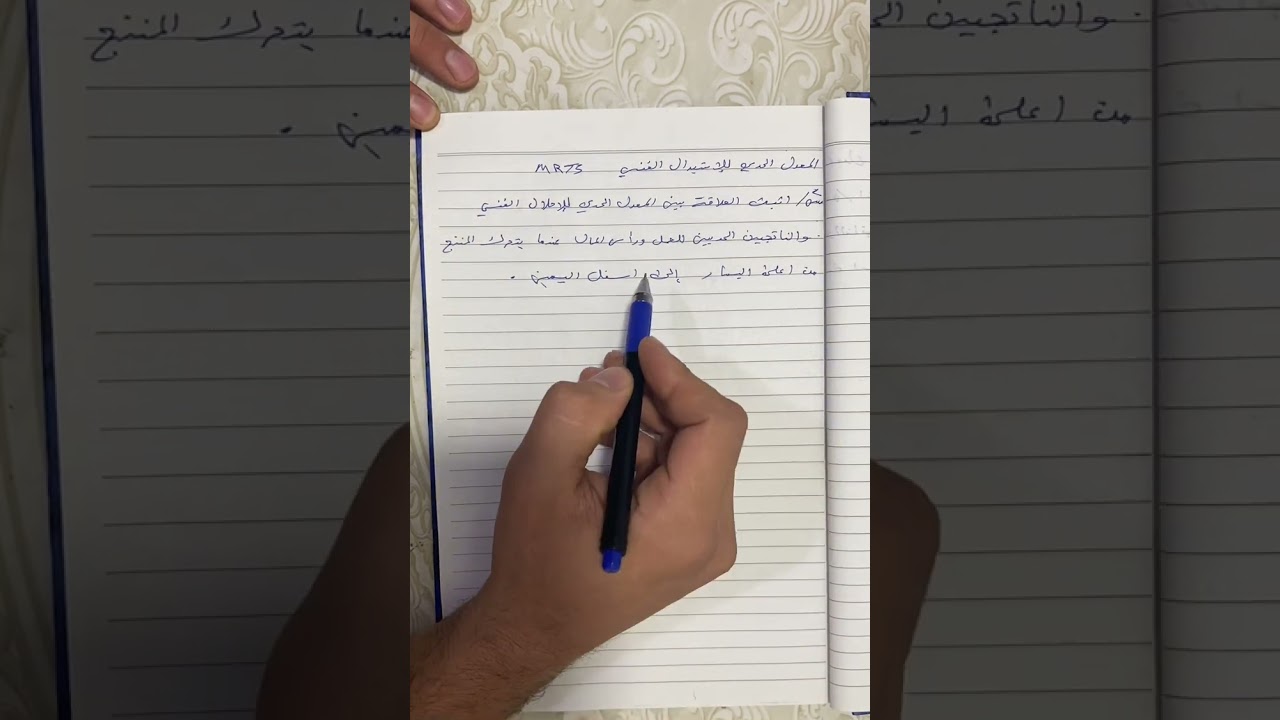 المعدل الحدي للإستبدال الفني MRTS
س/ اثبت العلاقة بين المعدل الحدي للإحلال الفني
والناتجين الحديين للعمل ورأس المال عندما يتحرك المنتج
من اعلى اليسار إلى اسفل اليمين .